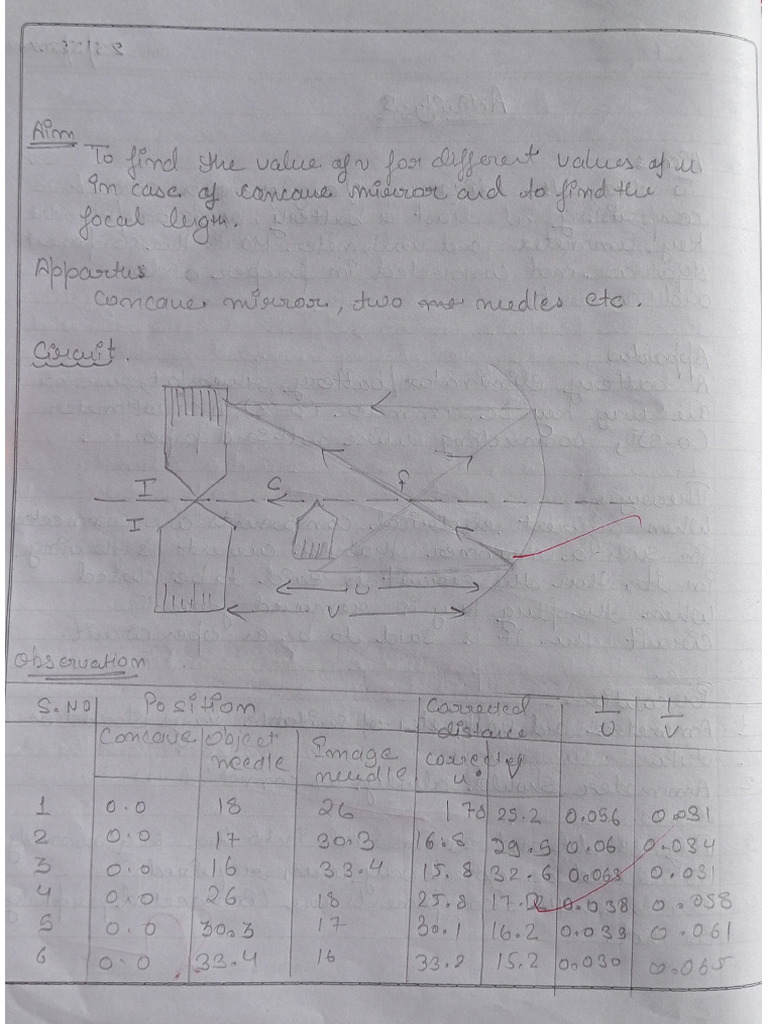 Aim
To find the value of v for different values of u
In case of concave mirror and to find the
focal legm.
Appartus
Concave mirror, two me needles etc.
Circuit.
I C f
I
U
V
Observation
S.NO Position Corrected distance 1/U 1/V
Concave Object needle Image needle corrected u v
1 0.0 18 26 178 25.2 0.056 0.031
2 0.0 17 30.3 16.8 29.5 0.06 0.034
3 0.0 16 33.4 15.8 32.6 0.063 0.031
4 0.0 26 18 25.8 17.2 0.038 0.058
5 0.0 30.3 17 30.1 16.2 0.039 0.061
6 0.0 33.4 16 33.2 15.2 0.030 0.065